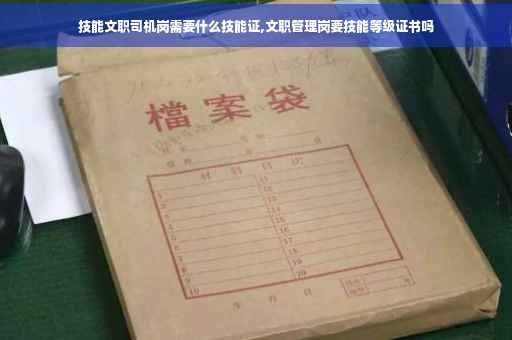 技能文职司机岗需要什么技能证,文职管理岗要技能等级证书吗
檔案袋
材料目次
1 11
2 12
3 13
4 14
5 15
6 16
7 17
8 18
9 19
10 20
年 月 日